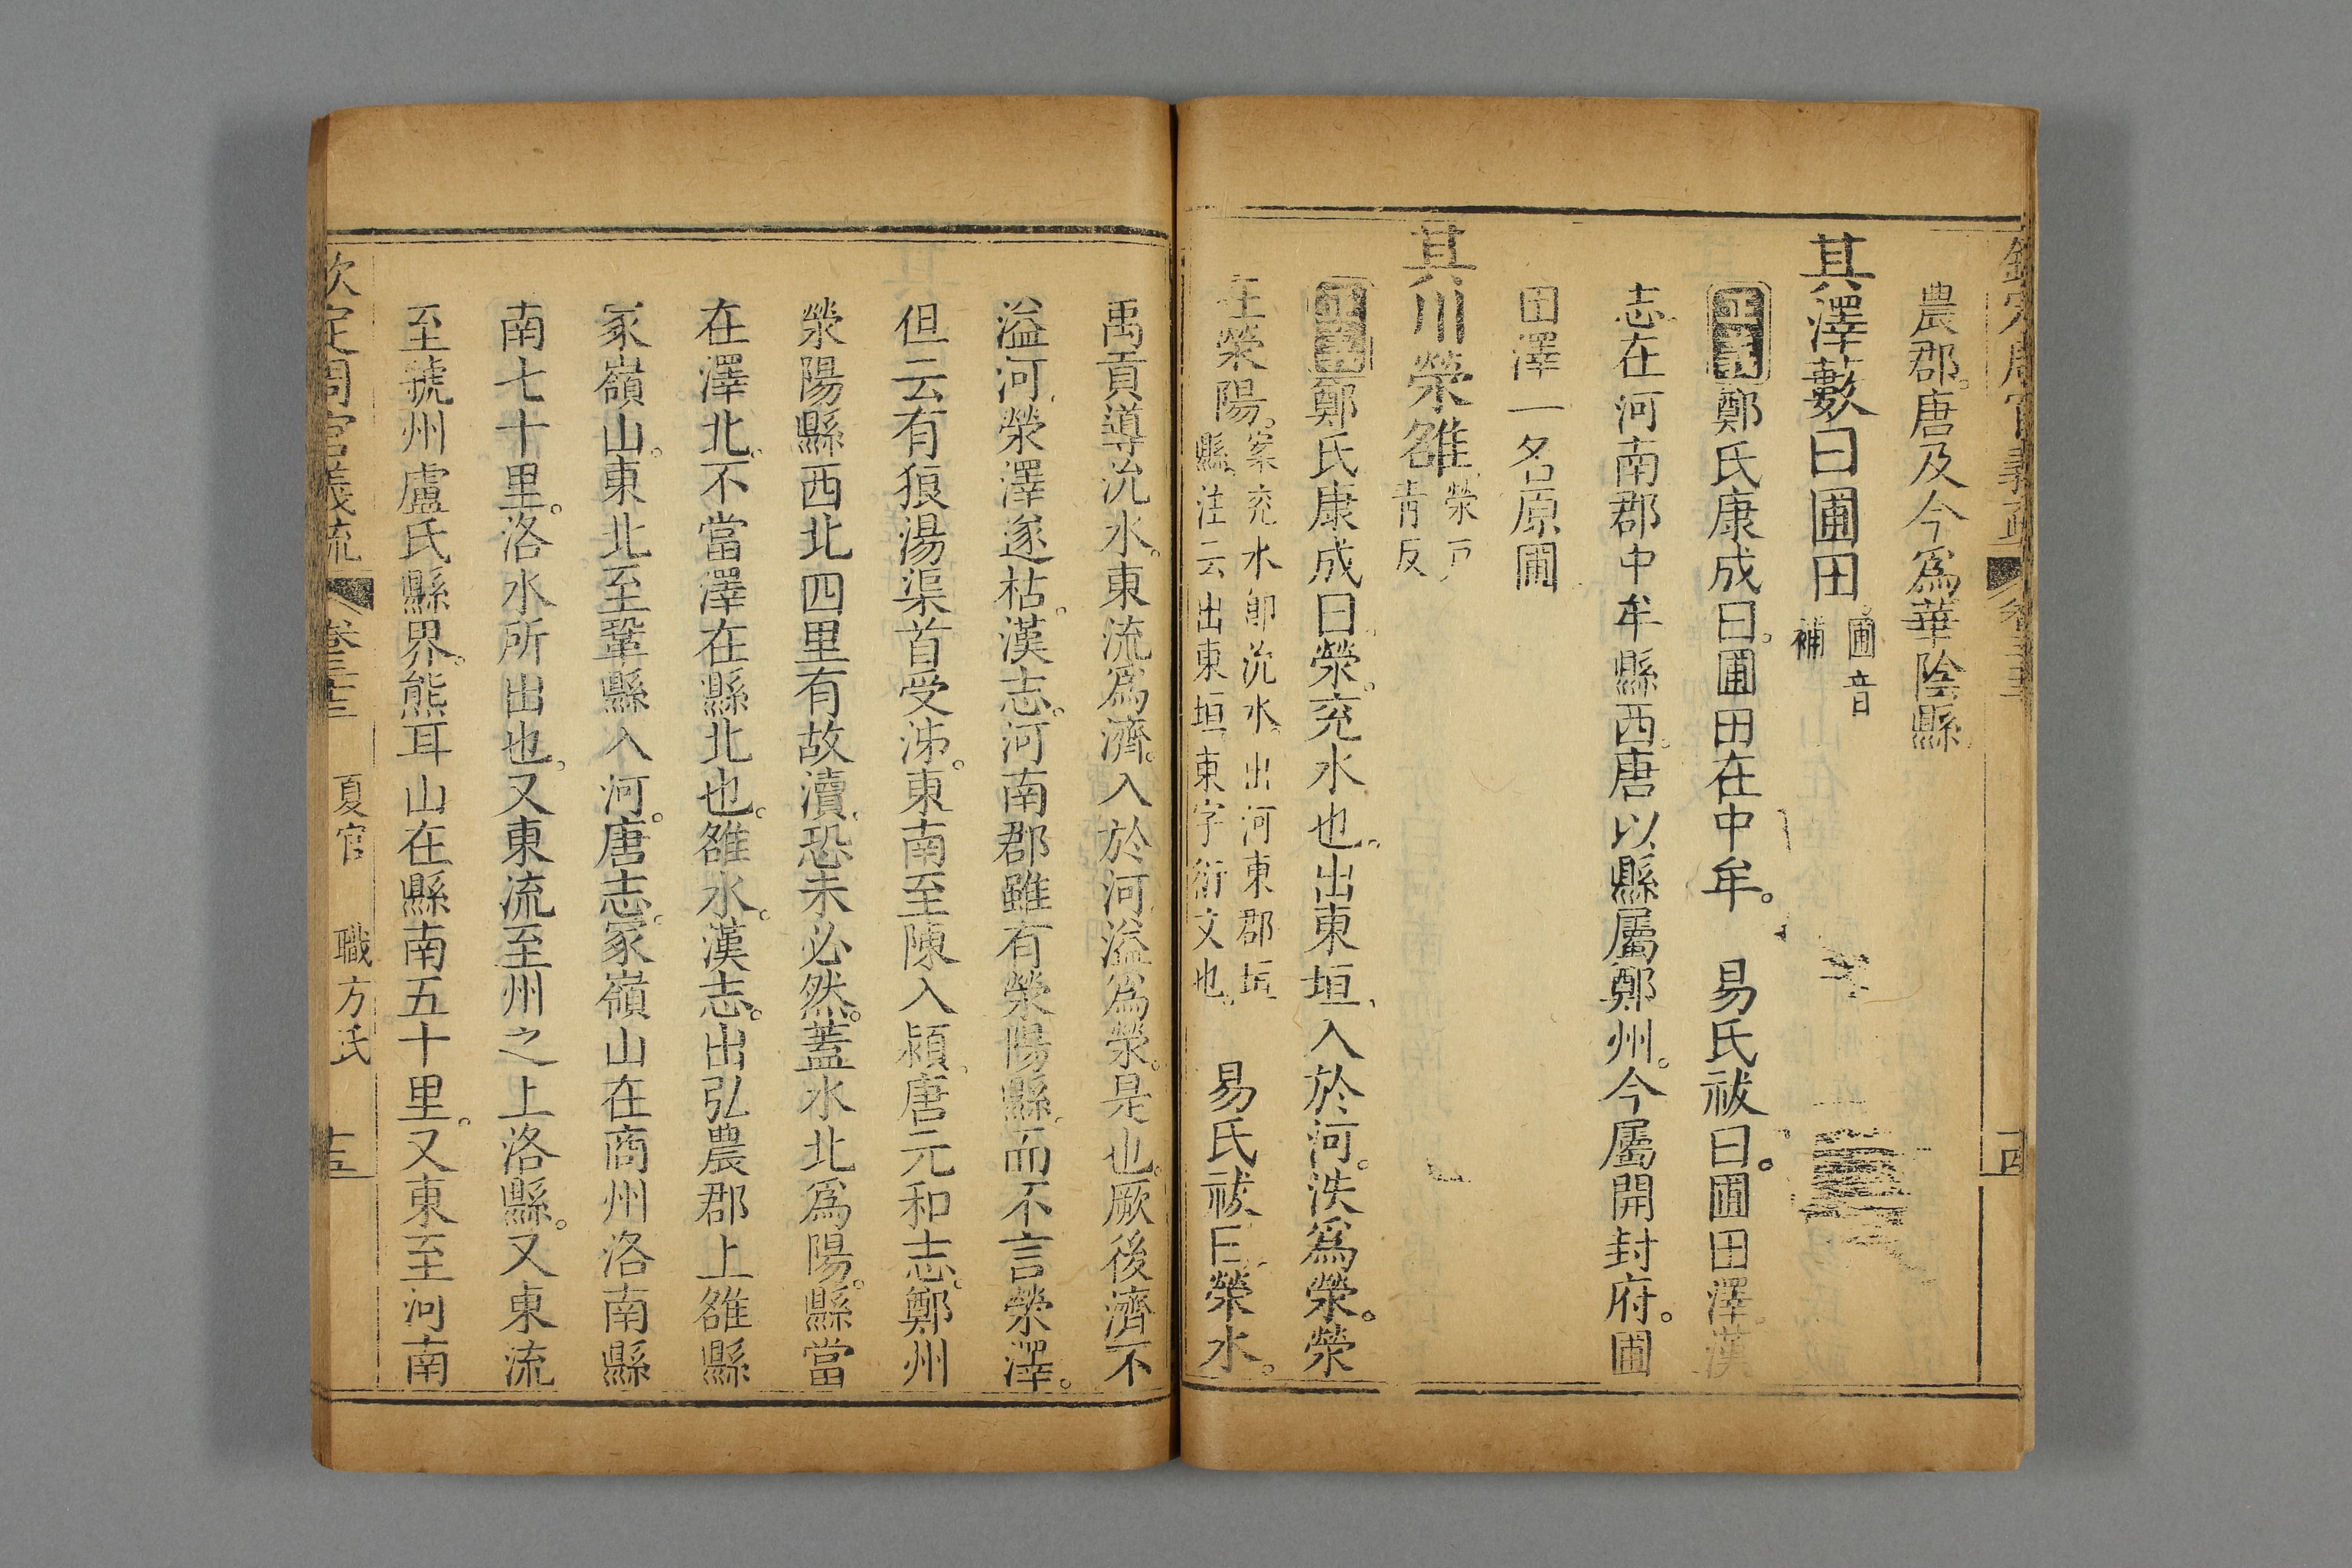 農郡。唐及今爲華陰縣
其澤藪曰圃田 圃音
補
正義鄭氏康成曰。圃田在中牟。 易氏祓曰。圃田澤。漢
志在河南郡中牟縣西。唐以縣屬鄭州。今屬開封府。圃
田澤一名原圃
其川滎雒 滎戸
青反
正義鄭氏康成曰滎。兖水也。出東垣、入於河。泆爲滎。滎
在滎陽。案兖水卽沇水。出河東郡垣
縣。注云出東垣、東字衍文也。 易氏祓曰滎水。
禹貢導沇水。東流爲濟。入於河溢爲滎。是也。厥後濟不
溢河、滎澤遂枯。漢志。河南郡雖有滎陽縣。而不言滎澤。
但云有狼湯渠首受泲。東南至陳入潁、唐元和志。鄭州
滎陽縣西北四里有故瀆、恐未必然。蓋水北爲陽。縣當
在澤北。不當澤在縣北也。雒水。漢志。出弘農郡上雒縣
冢嶺山。東北至鞏縣入河。唐志。冢嶺山在商州洛南縣
南七十里。洛水所出也。又東流至州之上洛縣。又東流
至虢州盧氏縣界。熊耳山在縣南五十里。又東至河南
欽定周官義疏 卷三十三 夏官 職方氏